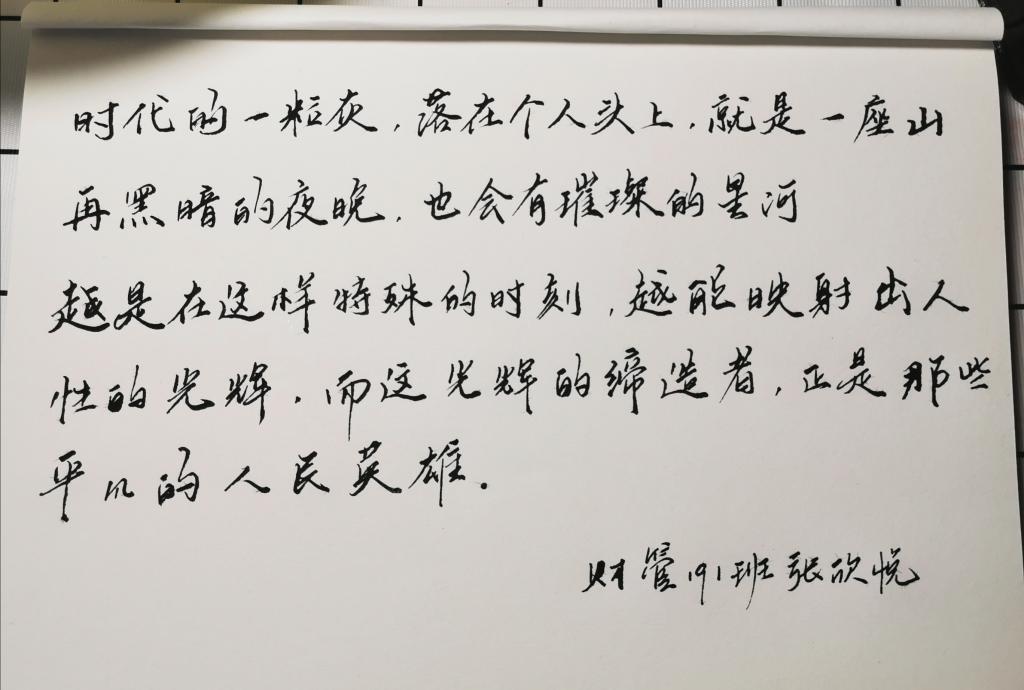 时代的一粒灰，落在个人头上，就是一座山
再黑暗的夜晚，也会有璀璨的星河
越是在这样特殊的时刻，越能映射出人
性的光辉，而这光辉的缔造者，正是那些
平凡的人民英雄.
财管191班张欣悦